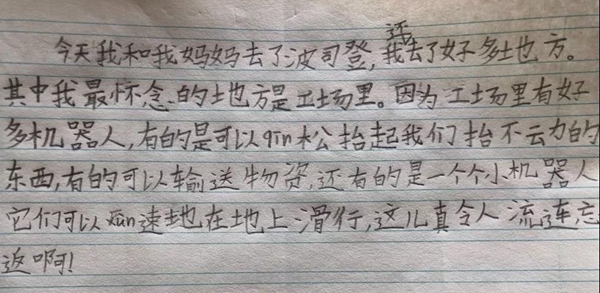 今天我和我妈妈去了波司登,还我去了好多地方。
其中我最怀念的地方是工场里。因为工场里有好
多机器人,有的是可以qin松抬起我们抬不云力的
东西,有的可以输送物资,还有的是一个个小机器人
它们可以xùn速地在地上滑行,这儿真令人流连忘
返啊!